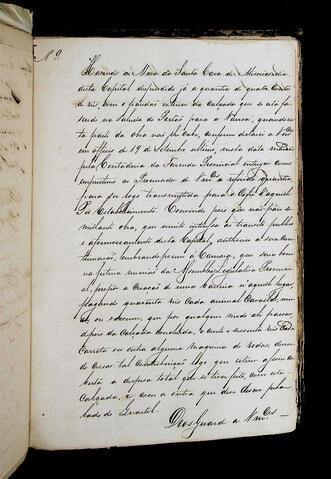 N 9.
Havendo a Mesa da Santa Casa de Misericordia
desta Capital despendido já a quantia de quarenta Contos
de reis, com o grande interesse da Calçada que se está fa-
sendo na sahida do Portão para a Varsea, quando es-
ta parte da obra não por Cabe, conforme declarei a Vm.ces
em officio de 19 de Setembro ultimo, nesta data
pela Contadoria da Fazenda Provincial entregar como
emprestimo ao Procurador de Vm.ces a referida quantia,
para ser logo transmittida para o Cofre d'aquel
Pio Estabelecimento. Convindo pois que não pare se-
milhante obra, que muito interessa ao transito publico
e aformoseamento desta Capital, authoriso a sua Con-
tinuação; lembrando porem á Camara, que seria bom
na futura reunião da Assemblea Legislativa Provinci-
al, propôr a Creação de uma Barreira n'aquelle lugar,
pagando quarenta reis Cada animal Cavallar, mu-
ar, ou vaccum, que por qualquer modo ali passar,
depois da Calçada Concluida, e cento e sessenta reis Cada
Carreta ou outra alguma maquina de rodas, deven-
do Cessar tal Contribuição logo que estiver assim co-
berta a despesa total que se tiver feito, com esta
Calçada, e com a outra que deve Cesar pelo
lado do Quartel.
Deos Guarde a Vm.ces